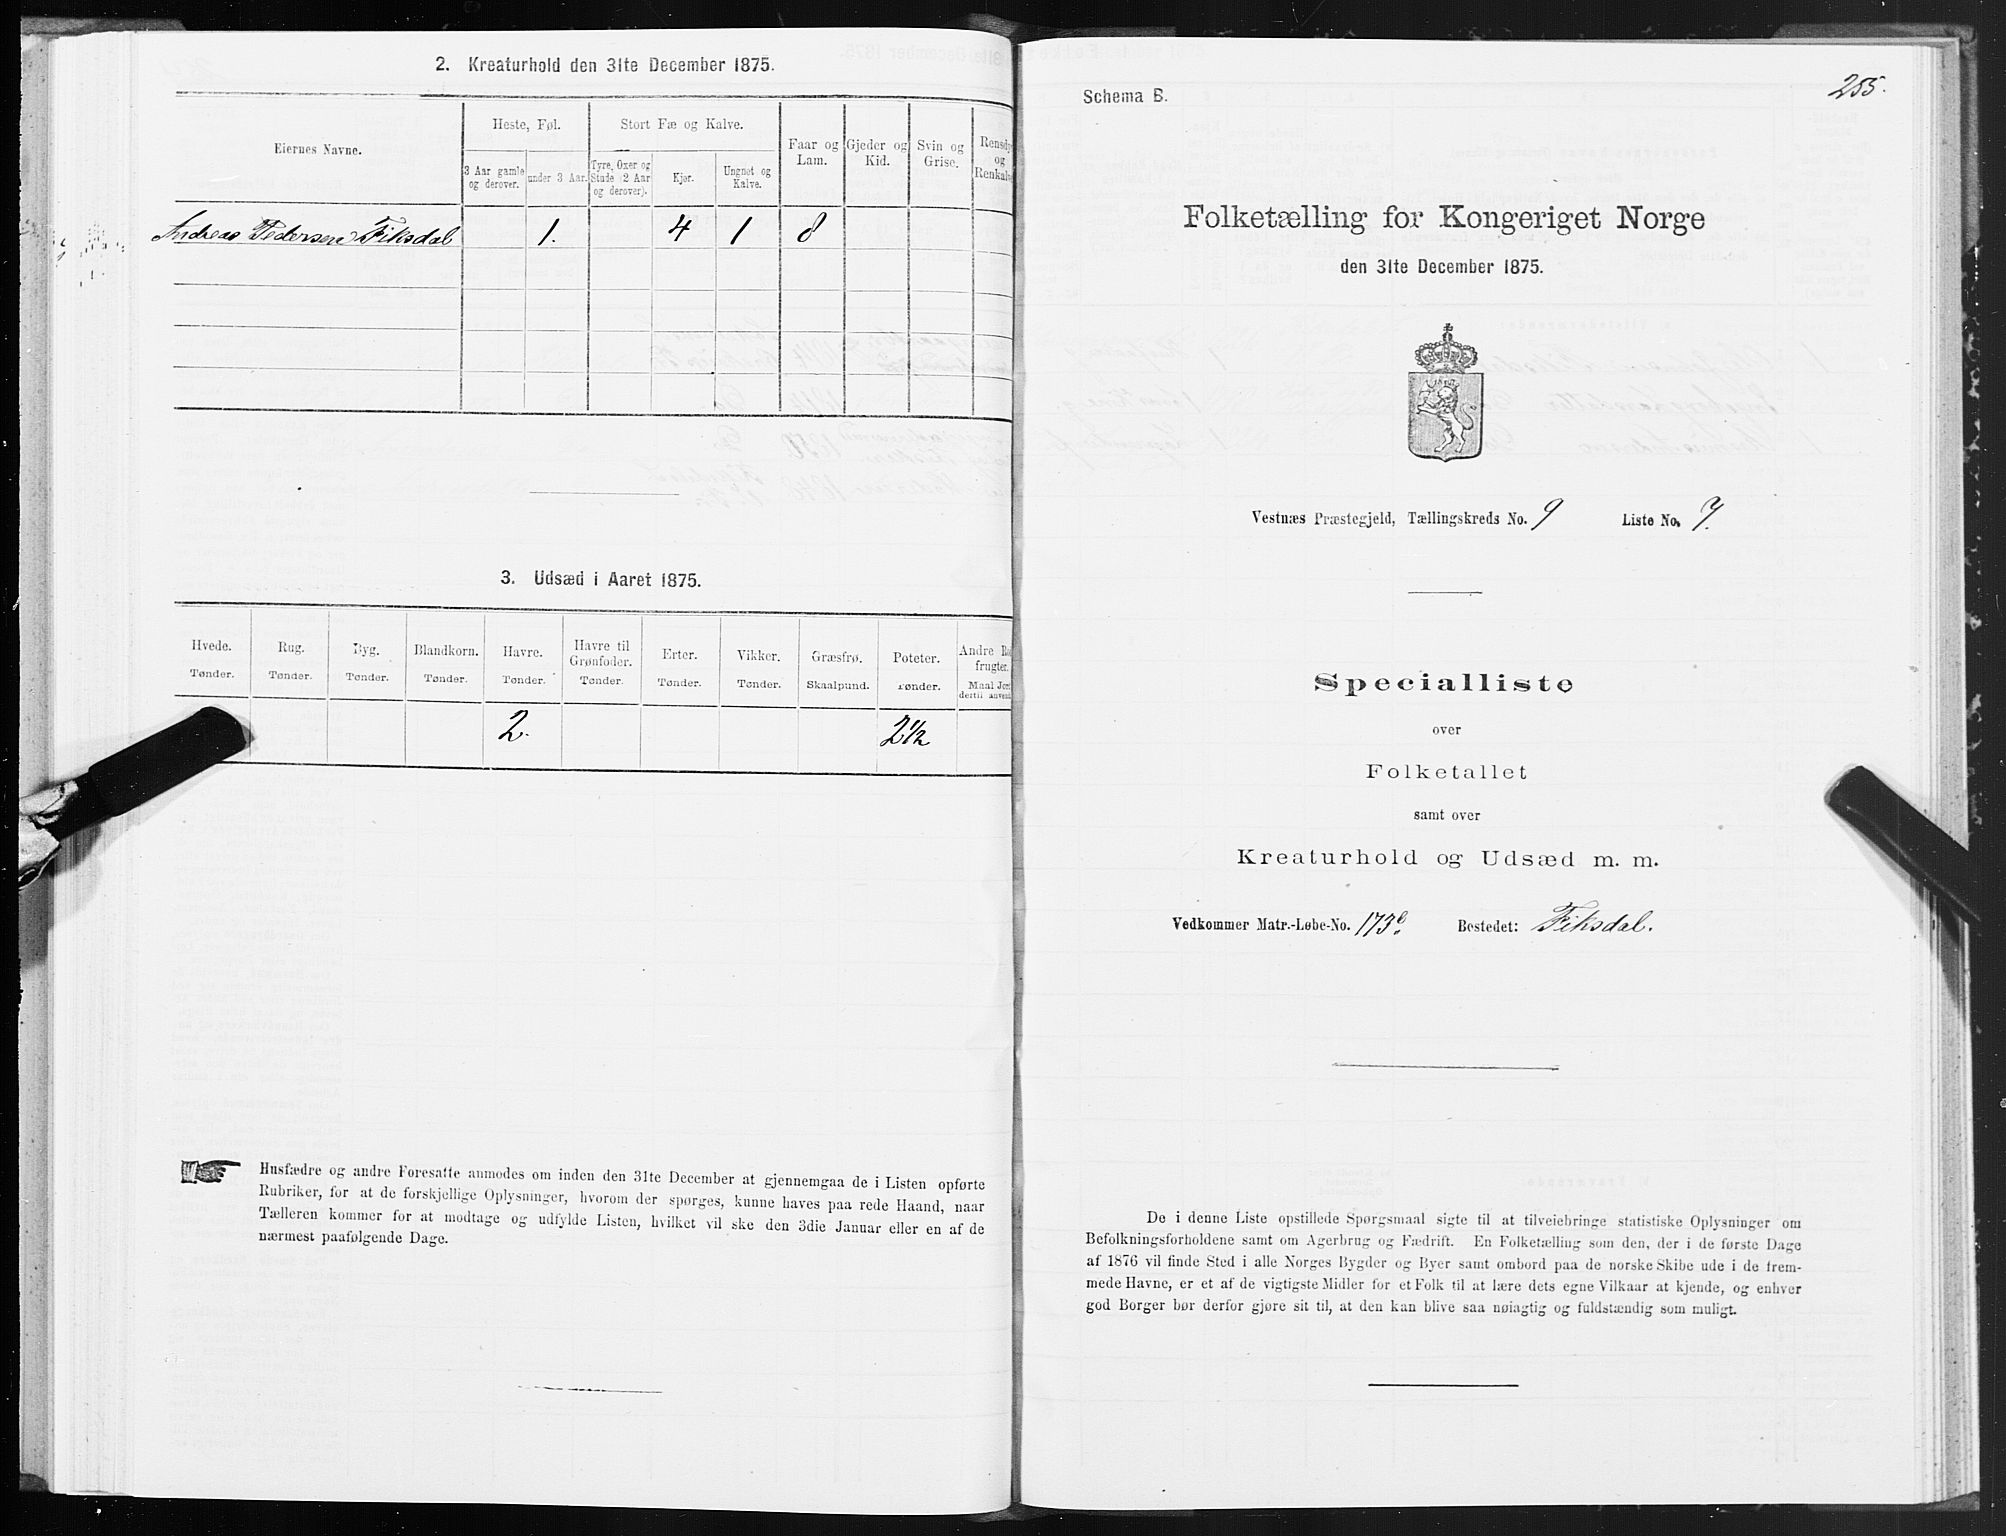 2. Kreaturhold den 31te December 1875.
Eiernes Navne.
Heste, Føl.
Stort Fæ og Kalve.
Faar og Lam.
Gjeder og Kid.
Svin og Grise.
og
3 Aar gamle og derover.
under 3 Aar.
Tyre, Oxer og Stude (2 Aar og derover).
Kjør.
Ungnøt og Kalve.
Andreas Pedersen Fiksdal 1. 4 1 8
3. Udsæd i Aaret 1875.
Hvede. Rug. Byg. Blandkorn. Havre. Havre til Grønfoder. Erter. Vikker. Græsfrø. Poteter. Andre
frugter.
Tønder. Tønder. Tønder. Tønder. Tønder. Tønder. Tønder. Tønder. Skaalpund. Tønder. Maal
dertil
2. 2½
Husfædre og andre Foresatte anmodes om inden den 31te December at gjennemgaa de i Listen opførte
Rubriker, for at de forskjellige Oplysninger, hvorom der spørges, kunne haves paa rede Haand, naar
Tælleren kommer for at modtage og udfylde Listen, hvilket vil ske den 3die Januar eller en af de
nærmest paafølgende Dage.
255.
Schema B.
Folketælling for Kongeriget Norge
den 31te December 1875.
Vestnæs Præstegjeld, Tællingskreds No. 9 Liste No. 7.
Specialliste
over
Folketallet
samt over
Kreaturhold og Udsæd m. m.
Vedkommer Matr.-Løbe-No. 173 Bestedet: Fiksdal.
De i denne Liste opstillede Spørgsmaal sigte til at tilveiebringe statistiske Oplysninger om
Befolkningsforholdene samt om Agerbrug og Fædrift. En Folketælling som den, der i de første Dage
af 1876 vil finde Sted i alle Norges Bygder og Byer samt ombord paa de norske Skibe ude i de frem-
mede Havne, er et af de vigtigste Midler for et Folk til at lære dets egne Vilkaar at kjende, og enhver
god Borger bør derfor gjøre sit til, at den kan blive saa nøiagtig og fuldstændig som muligt.